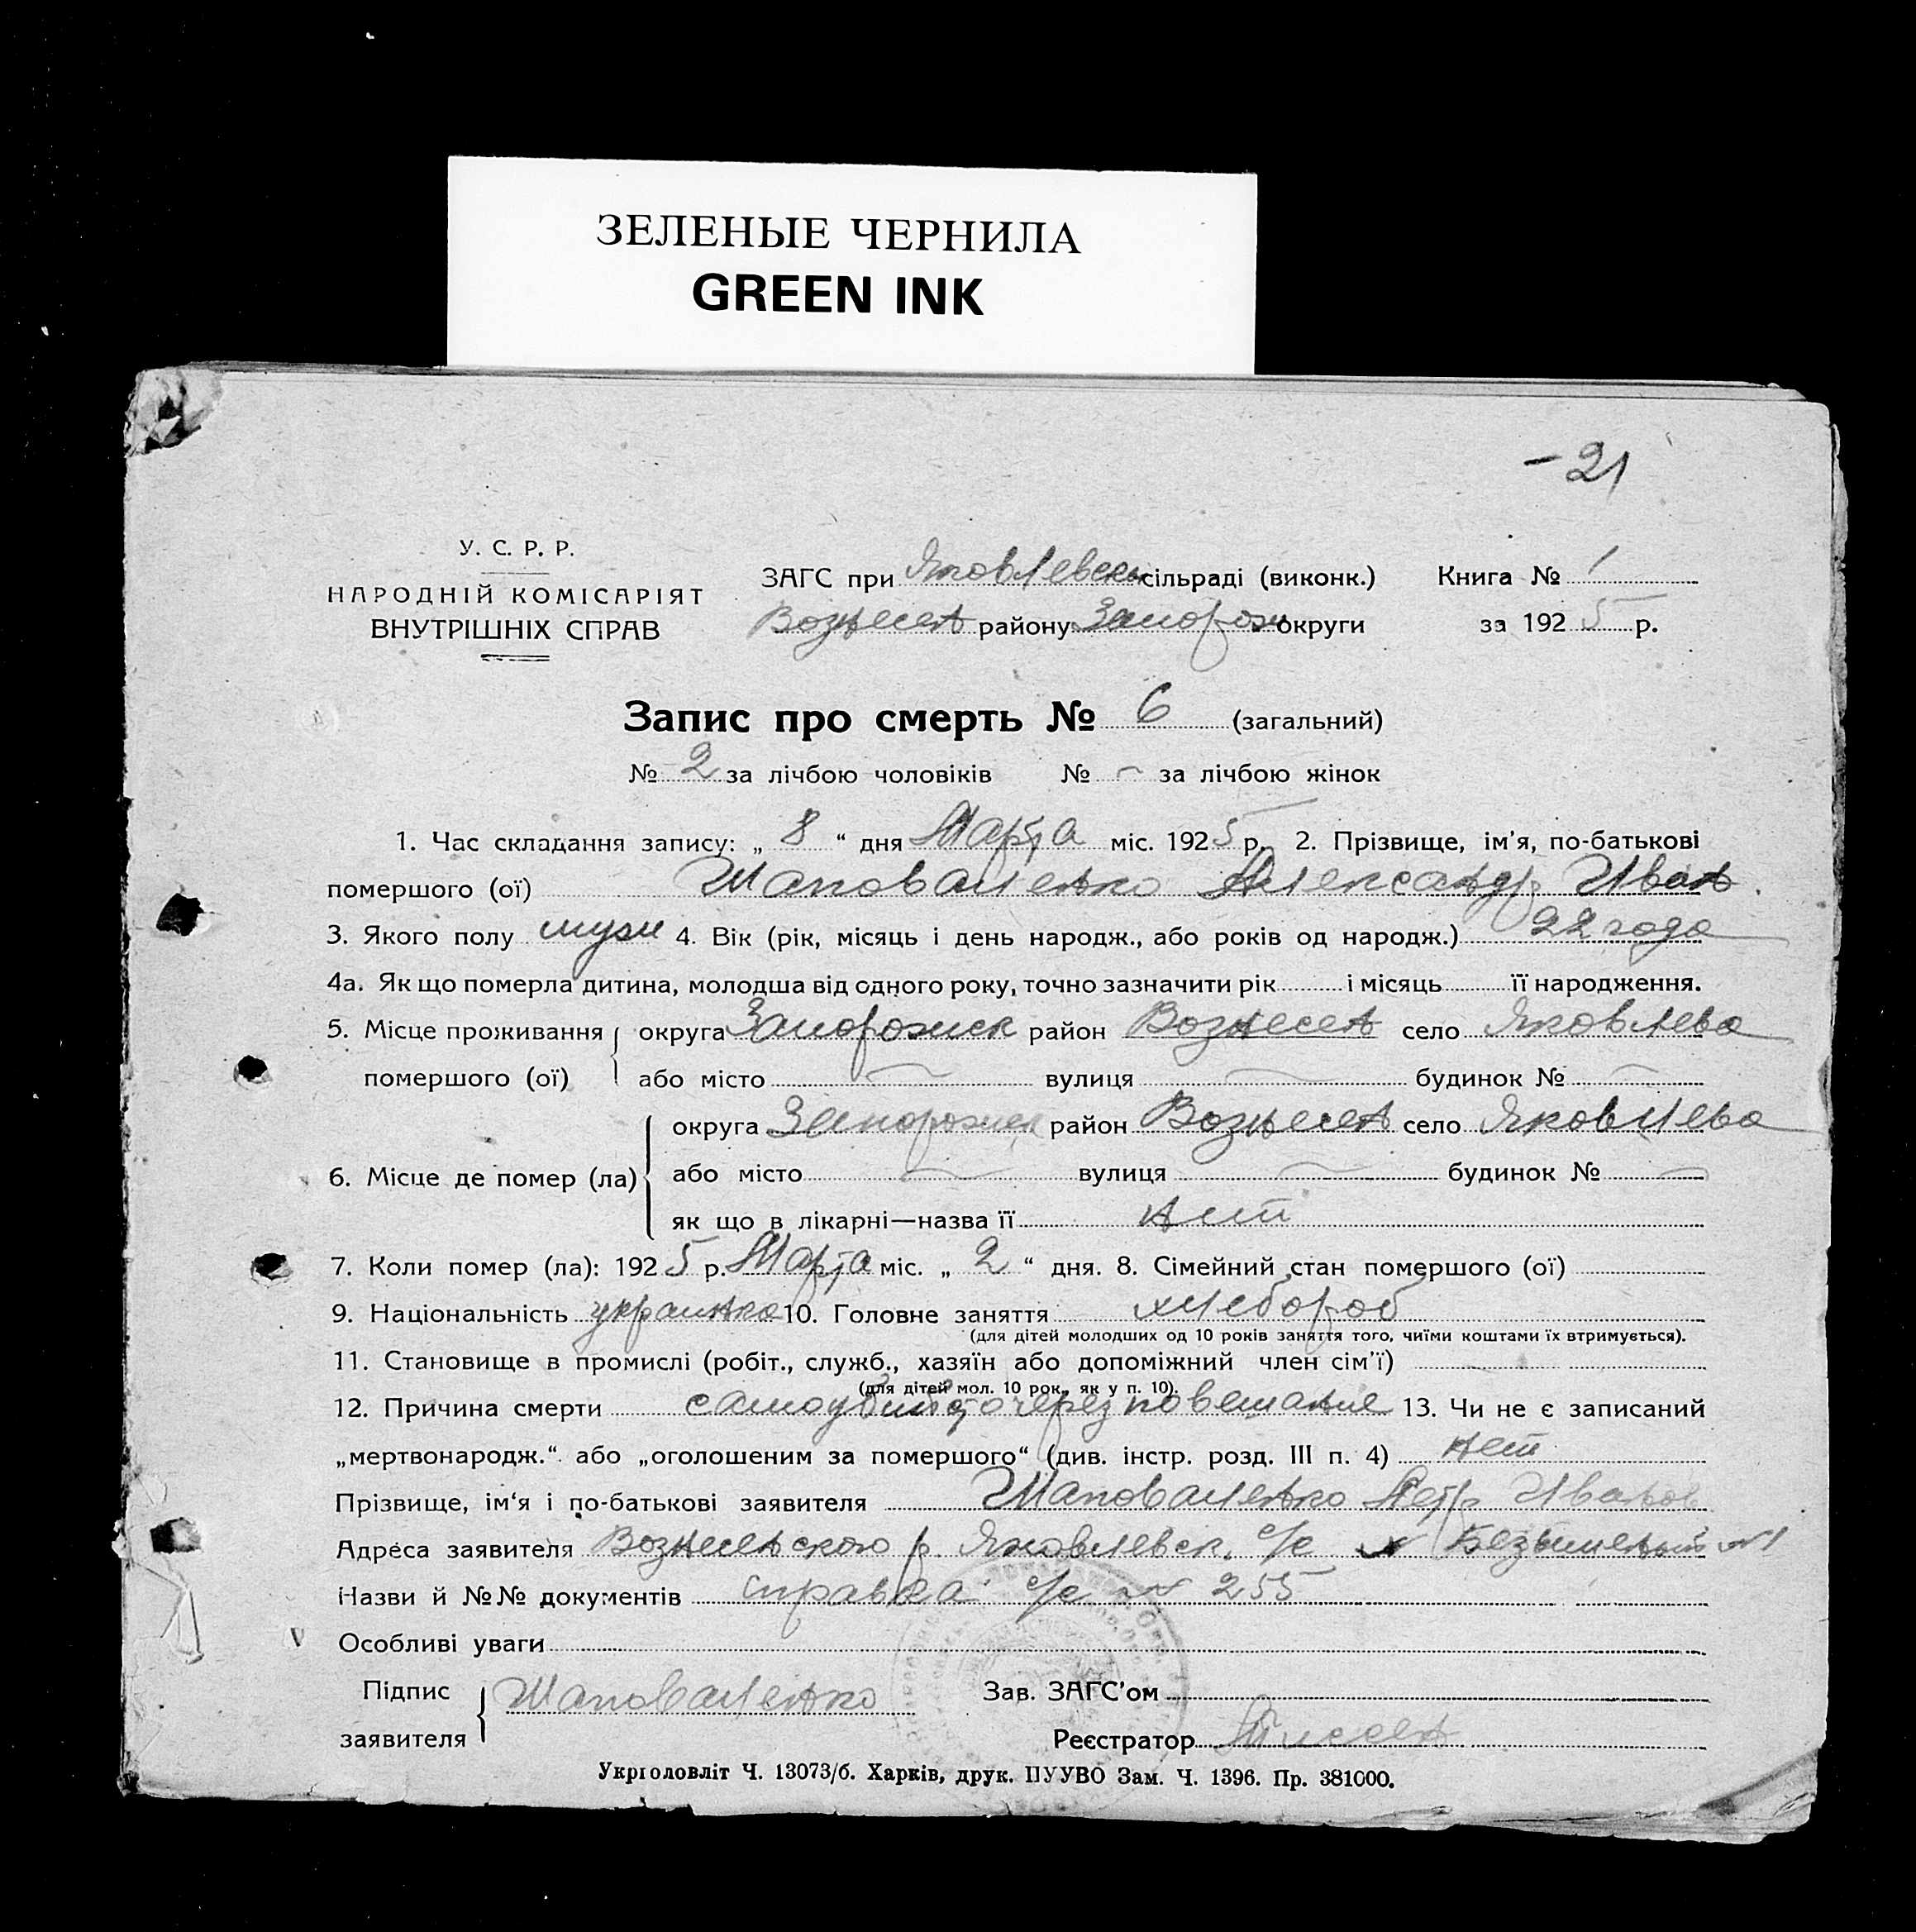 ЗЕЛЕНЫЕ ЧЕРНИЛА
GREEN INK
-21
У. С. Р. Р.
НАРОДНІЙ КОМІСАРІЯТ
ВНУТРІШНІХ СПРАВ
ЗАГС при Яковлевськ сільраді (виконк.) Книга № 1
Вознесен району Запорож округи за 1925 р.
Запис про смерть № 6 (загальний)
№ 2 за лічбою чоловіків № - за лічбою жінок
1. Час складання запису: „ 8 “ дня Марта міс. 1925 р. 2. Прізвище, ім'я, по-батькові
помершого (ої) Шаповаленко Александр Иван
3. Якого полу муж 4. Вік (рік, місяць і день народж., або років од народж.) 22 года
4а. Як що померла дитина, молодша від одного року, точно зазначити рік і місяць її народження.
5. Місце проживання округа Запорожск район Вознесен село Яковлева
помершого (ої) або місто — вулиця — будинок № —
округа Запорожск район Вознесен село Яковлева
6. Місце де помер (ла) або місто — вулиця — будинок № —
як що в лікарні—назва її нет
7. Коли помер (ла): 1925 р. Марта міс. „ 2 “ дня. 8. Сімейний стан помершого (ої)
9. Національність украинка 10. Головне заняття хлебороб
(для дітей молодших од 10 років заняття того, чиїми коштами їх втримується).
11. Становище в промислі (робіт., служб., хазяїн або допоміжний член сім'ї)
(для дітей мол. 10 рок., як у п. 10).
12. Причина смерти самоубийсто через повешание 13. Чи не є записаний
„мертвонародж.“ або „оголошеним за помершого“ (див. інстр. розд. III п. 4) нет
Прізвище, ім'я і по-батькові заявителя Шаповаленко Петр Иванов
Адреса заявителя Вознесенского р. Яковлевск. с/с х Безыменый №1
Назви й №№ документів справка с/с № 255
Особливі уваги
Підпис Шаповаленко Зав. ЗАГС'ом
заявителя Реєстратор
Укрголовліт Ч. 13073/б. Харків, друк. ПУУВО Зам. Ч. 1396. Пр. 381000.